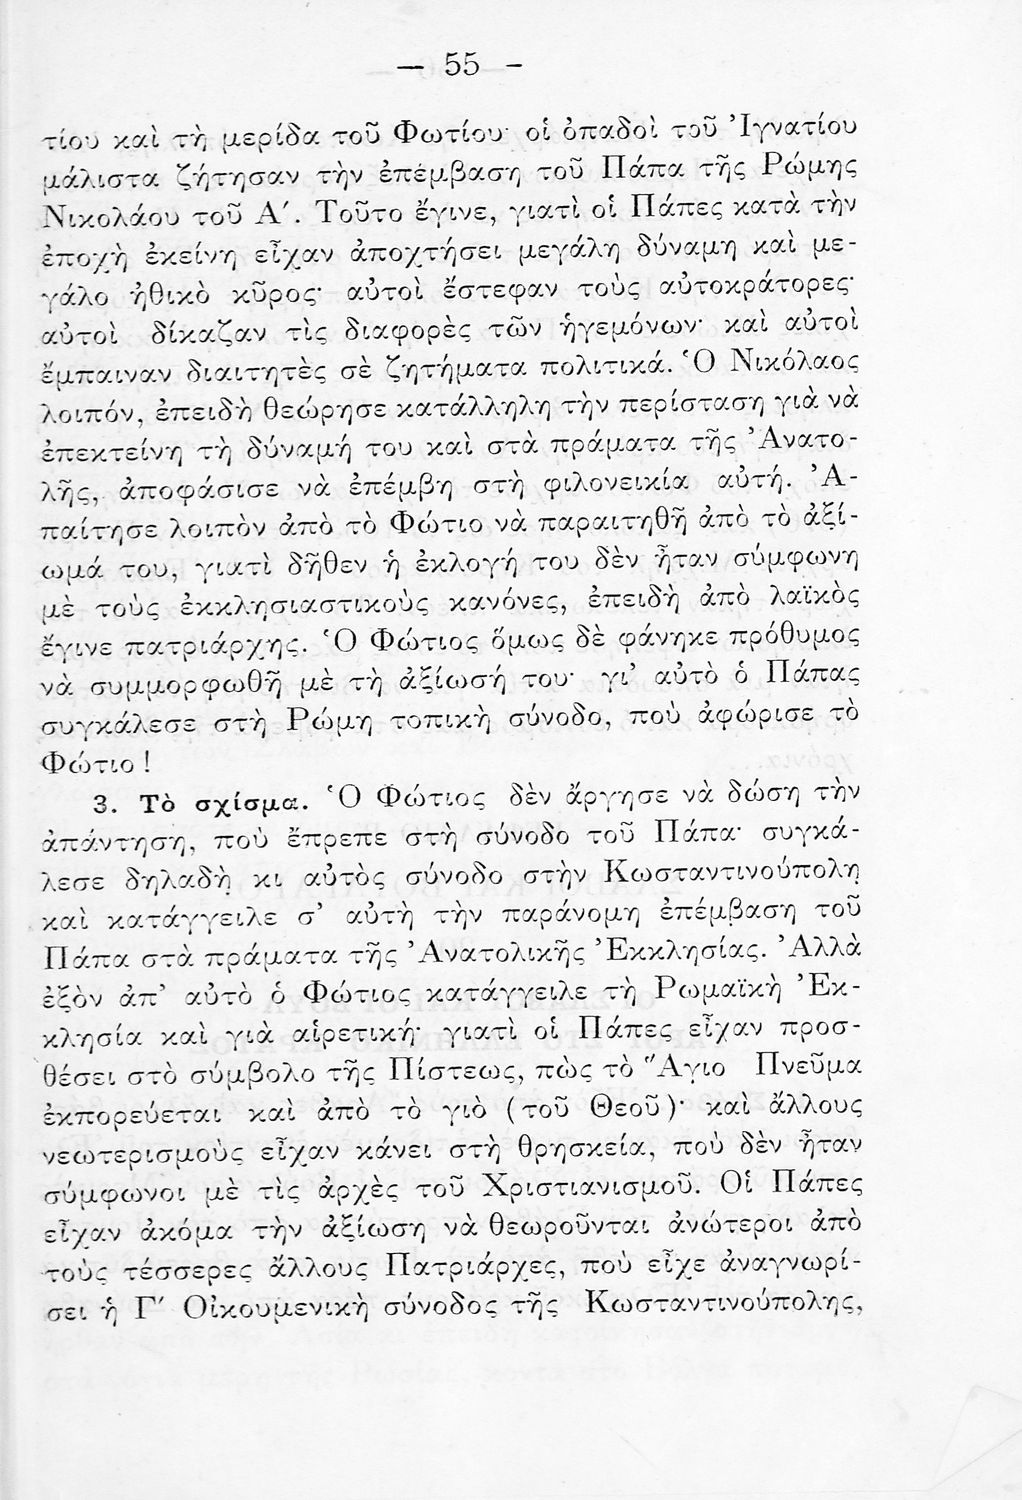 — 55 -
τίου καὶ τὴ μερίδα τοῦ Φωτίου· οἱ ὀπαδοὶ τοῦ Ἰγνατίου
μάλιστα ζήτησαν τὴν ἐπέμβαση τοῦ Πάπα τῆς Ρώμης
Νικολάου τοῦ Α΄. Τοῦτο ἔγινε, γιατὶ οἱ Πάπες κατὰ τὴν
ἐποχὴ ἐκείνη εἶχαν ἀποχτήσει μεγάλη δύναμη καὶ με-
γάλο ἠθικὸ κῦρος· αὐτοὶ ἔστεφαν τοὺς αὐτοκράτορες·
αὐτοὶ δίκαζαν τὶς διαφορὲς τῶν ἡγεμόνων· καὶ αὐτοὶ
ἔμπαιναν διαιτητὲς σὲ ζητήματα πολιτικά. Ὁ Νικόλαος
λοιπόν, ἐπειδὴ θεώρησε κατάλληλη τὴν περίσταση γιὰ νὰ
ἐπεκτείνη τὴ δύναμή του καὶ στὰ πράματα τῆς Ἀνατο-
λῆς, ἀποφάσισε νὰ ἐπέμβη στὴ φιλονεικία αὐτή. Ἀ-
παίτησε λοιπὸν ἀπὸ τὸ Φώτιο νὰ παραιτηθῆ ἀπὸ τὸ ἀξί-
ωμά του, γιατὶ δῆθεν ἡ ἐκλογή του δὲν ἦταν σύμφωνη
μὲ τοὺς ἐκκλησιαστικοὺς κανόνες, ἐπειδὴ ἀπὸ λαϊκὸς
ἔγινε πατριάρχης. Ὁ Φώτιος ὅμως δὲ φάνηκε πρόθυμος
νὰ συμμορφωθῆ μὲ τὴ ἀξίωσή του· γι’ αὐτὸ ὁ Πάπας
συγκάλεσε στὴ Ρώμη τοπικὴ σύνοδο, ποὺ ἀφώρισε τὸ
Φώτιο !
3. Τὸ σχίσμα. Ὁ Φώτιος δὲν ἄργησε νὰ δώση τὴν
ἀπάντηση, ποὺ ἔπρεπε στὴ σύνοδο τοῦ Πάπα· συγκά-
λεσε δηλαδὴ κι αὐτὸς σύνοδο στὴν Κωσταντινούπολη
καὶ κατάγγειλε σ’ αὐτὴ τὴν παράνομη ἐπέμβαση τοῦ
Πάπα στὰ πράματα τῆς Ἀνατολικῆς Ἐκκλησίας. Ἀλλὰ
ἐξὸν ἀπ’ αὐτὸ ὁ Φώτιος κατάγγειλε τὴ Ρωμαϊκὴ Ἐκ-
κλησία καὶ γιὰ αἱρετική· γιατὶ οἱ Πάπες εἶχαν προσ-
θέσει στὸ σύμβολο τῆς Πίστεως, πὼς τὸ Ἅγιο Πνεῦμα
ἐκπορεύεται καὶ ἀπὸ τὸ γιὸ (τοῦ Θεοῦ)· καὶ ἄλλους
νεωτερισμοὺς εἶχαν κάνει στὴ θρησκεία, ποὺ δὲν ἦταν
σύμφωνοι μὲ τὶς ἀρχὲς τοῦ Χριστιανισμοῦ. Οἱ Πάπες
εἶχαν ἀκόμα τὴν ἀξίωση νὰ θεωροῦνται ἀνώτεροι ἀπὸ
τοὺς τέσσερες ἄλλους Πατριάρχες, ποὺ εἶχε ἀναγνωρί-
σει ἡ Γ΄ Οἰκουμενικὴ σύνοδος τῆς Κωσταντινούπολης,